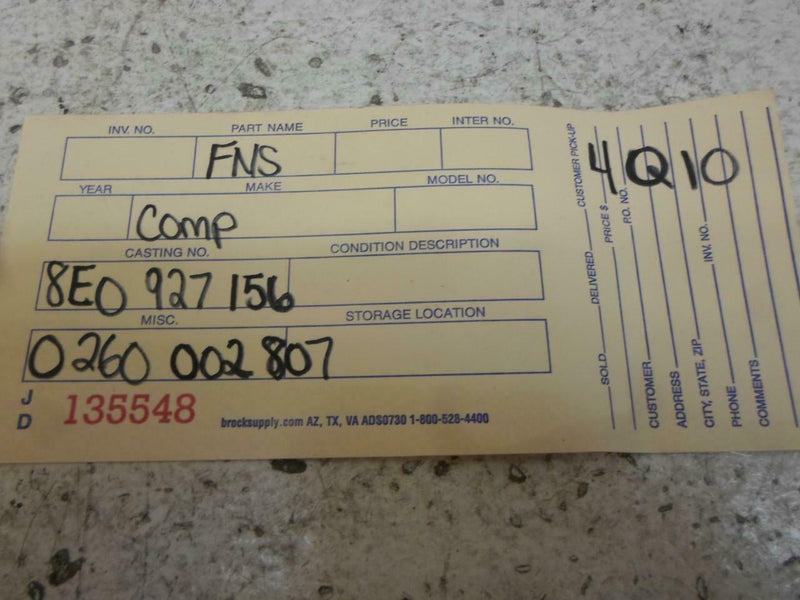 INV. NO. PART NAME PRICE INTER NO.
FNS
YEAR MAKE MODEL NO.
Comp
CASTING NO. CONDITION DESCRIPTION
8E0 927 156
MISC. STORAGE LOCATION
0260 002 807
J
D
135548
brocksupply.com AZ, TX, VA ADS0730 1-800-528-4400
4Q10
SOLD DELIVERED CUSTOMER PICK-UP
PRICE $
P.O. NO.
CUSTOMER
ADDRESS
CITY, STATE, ZIP INV. NO.
PHONE
COMMENTS